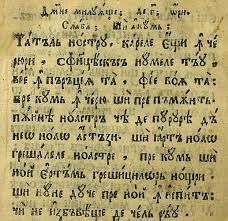 Дм҃не милꙋꙗще: де г҃: ѡри
Слава: Шиакꙋмь:
Татъль нострꙋ, кареле ещи ꙟ че
рюри, сфинцѣскъсе нꙋмеле тъꙋ
вїе ꙟпъръцїѧ та, фїе воѧ та:
прекꙋмь ꙟ черю ши препъмѫнть
пѫйнѣ ноастръ чѣ де пꙋрꙋрѣ дъ
не ноѡ астъзи. ши ꙗртъ ноѡ
грешалеле ноастре, пре кꙋмь ши
ной ертъмь грешицилѡрь нощри
ши нꙋ не дꙋче пре ной ꙟ испитъ:
чи не избъвѣще де чель ръꙋ